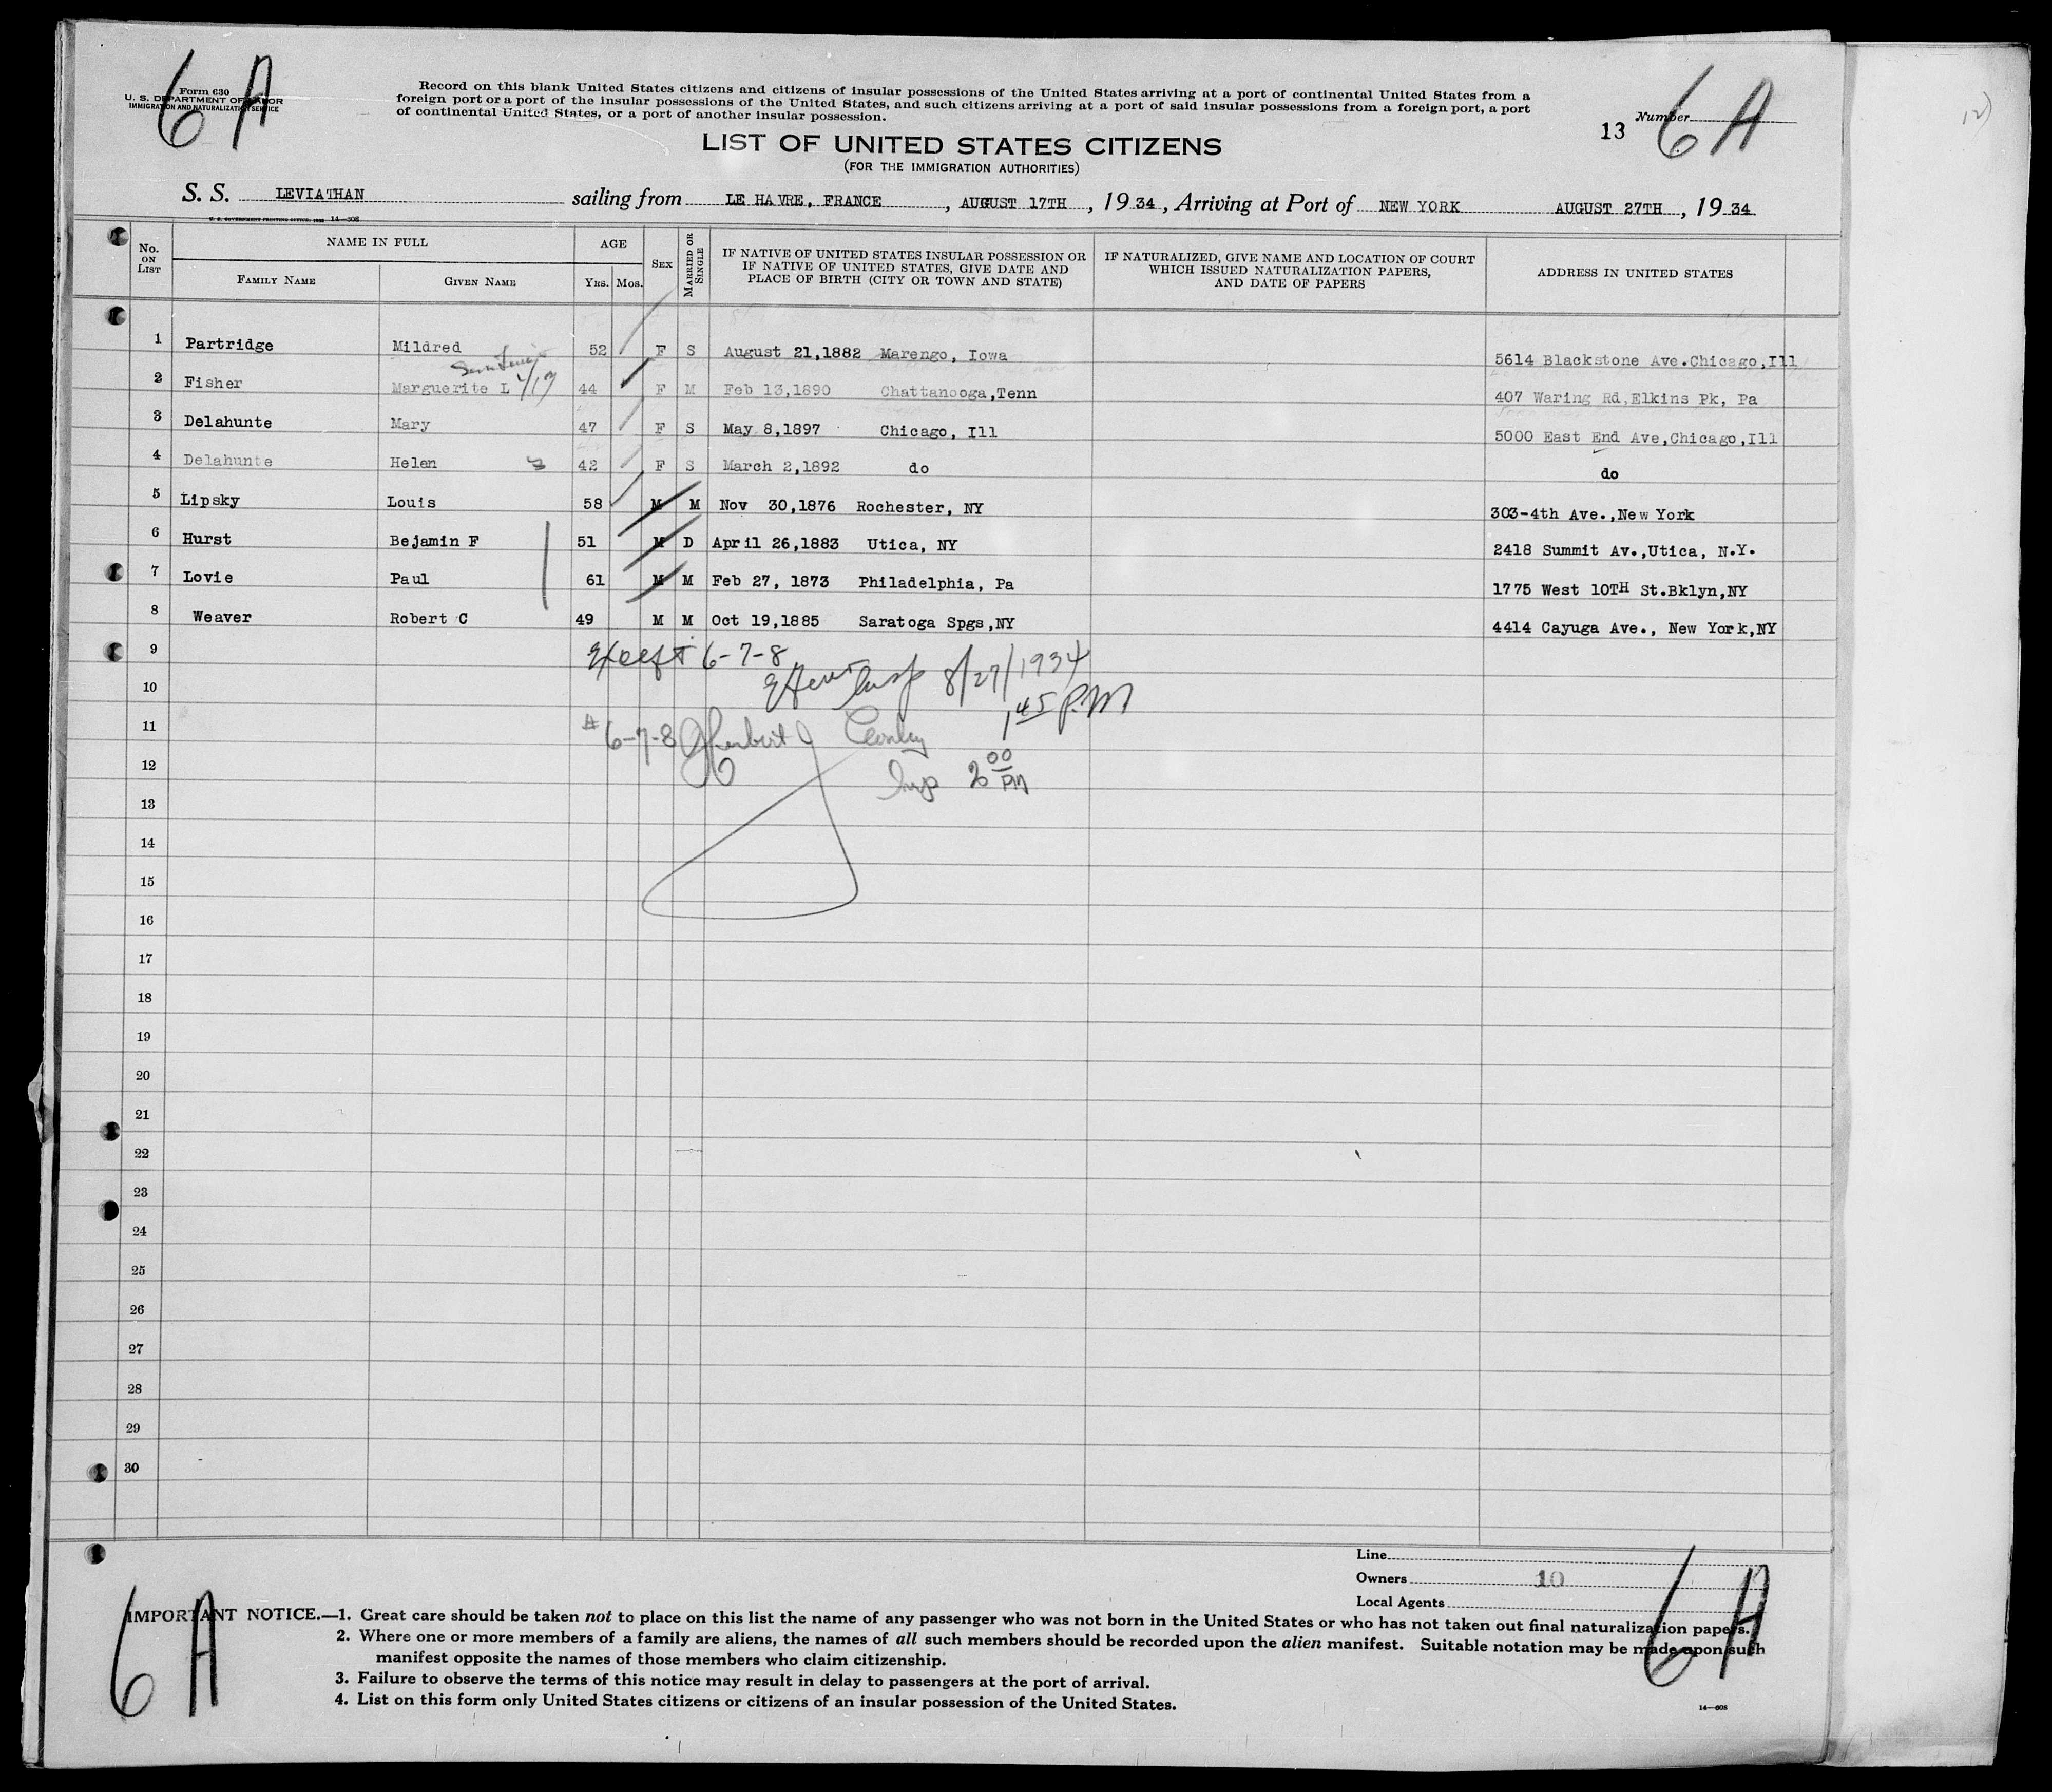 6 A
Form 630
U. S. DEPARTMENT OF LABOR
IMMIGRATION AND NATURALIZATION SERVICE
Record on this blank United States citizens and citizens of insular possessions of the United States arriving at a port of continental United States from a
foreign port or a port of the insular possessions of the United States, and such citizens arriving at a port of said insular possessions from a foreign port, a port
of continental United States, or a port of another insular possession.
13 Number 6 A
12)
LIST OF UNITED STATES CITIZENS
(FOR THE IMMIGRATION AUTHORITIES)
S. S. LEVIATHAN sailing from LE HAVRE, FRANCE, AUGUST 17TH, 1934, Arriving at Port of NEW YORK AUGUST 27TH, 1934
U. S. GOVERNMENT PRINTING OFFICE: 14—608
No. ON LIST NAME IN FULL AGE SEX MARRIED OR SINGLE IF NATIVE OF UNITED STATES INSULAR POSSESSION OR IF NATIVE OF UNITED STATES, GIVE DATE AND PLACE OF BIRTH (CITY OR TOWN AND STATE) IF NATURALIZED, GIVE NAME AND LOCATION OF COURT WHICH ISSUED NATURALIZATION PAPERS, AND DATE OF PAPERS ADDRESS IN UNITED STATES
FAMILY NAME GIVEN NAME YRS. MOS.
1 Partridge Mildred 52 F S August 21,1882 Marengo, Iowa 5614 Blackstone Ave.Chicago,Ill
2 Fisher Marguerite L 44 F M Feb 13,1890 Chattanooga,Tenn 407 Waring Rd,Elkins Pk, Pa
3 Delahunte Mary 47 F S May 8,1897 Chicago, Ill 5000 East End Ave,Chicago,Ill
4 Delahunte Helen 42 F S March 2,1892 do do
5 Lipsky Louis 58 M M Nov 30,1876 Rochester, NY 303-4th Ave.,New York
6 Hurst Bejamin F 51 M D April 26,1883 Utica, NY 2418 Summit Av.,Utica, N.Y.
7 Lovie Paul 61 M M Feb 27, 1873 Philadelphia, Pa 1775 West 10TH St.Bklyn,NY
8 Weaver Robert C 49 M M Oct 19,1885 Saratoga Spgs,NY 4414 Cayuga Ave., New York,NY
9 Except 6-7-8
10 Insp 8/27/1934
1 45 P.M
11 # 6-7-8
12 Insp 2 00 PM
13
14
15
16
17
18
19
20
21
22
23
24
25
26
27
28
29
30
Line
Owners 10
Local Agents
6 A
6 A
IMPORTANT NOTICE.—1. Great care should be taken not to place on this list the name of any passenger who was not born in the United States or who has not taken out final naturalization papers.
2. Where one or more members of a family are aliens, the names of all such members should be recorded upon the alien manifest. Suitable notation may be made upon such
manifest opposite the names of those members who claim citizenship.
3. Failure to observe the terms of this notice may result in delay to passengers at the port of arrival.
4. List on this form only United States citizens or citizens of an insular possession of the United States.
14—608